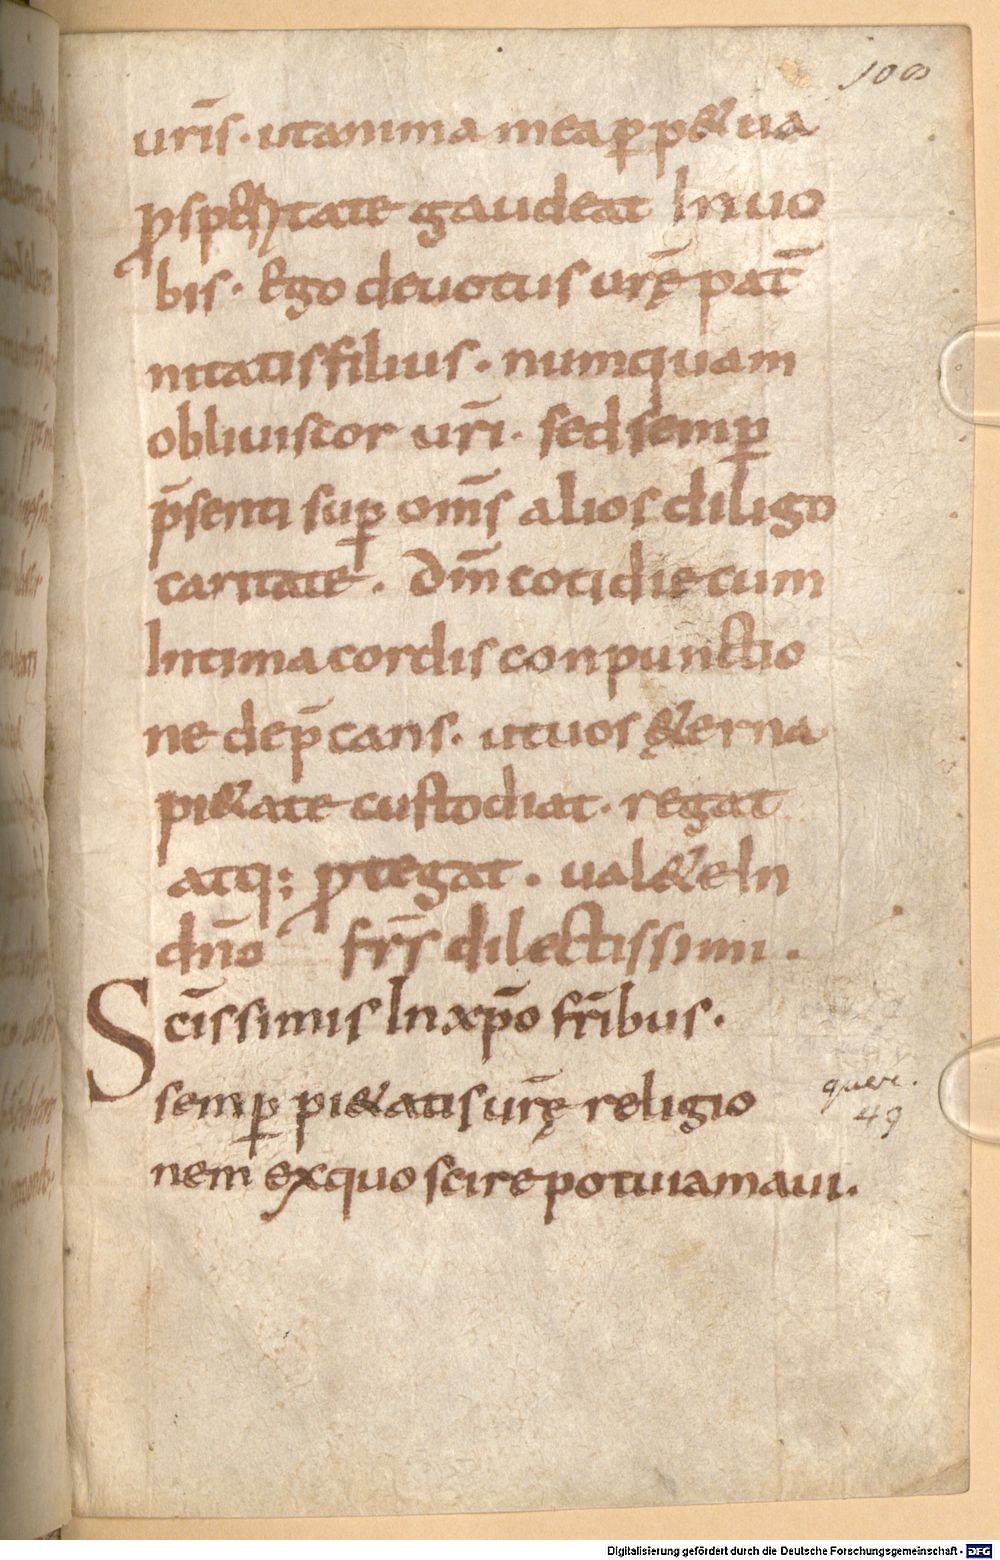 100
ur̄is. ut anima mea ꝑ p&ua
ꝓsperitate gaudeat In uo
bis. Ego deuotus urę̄ pat̄
nitatis filius. numquam
obliuiscor ur̄i. sed semꝑ
p̄senti suꝑ om̄s alios diligo
caritate. Dm̄ cotidie cum
Intima cordis conpunctio
ne dep̄cans. ut uos ę&erna
pi&ate custodiat. regat
atq; ꝓtegat. ual&e In
dn̄o fr̄s dilectissimi.
Sc̄issimis In xp̄o fr̄ibus.
semꝑ pi&atis urę̄ religio
nem ex quo scire potui amaui.
quere.
49
Digitalisierung gefördert durch die Deutsche Forschungsgemeinschaft - DFG